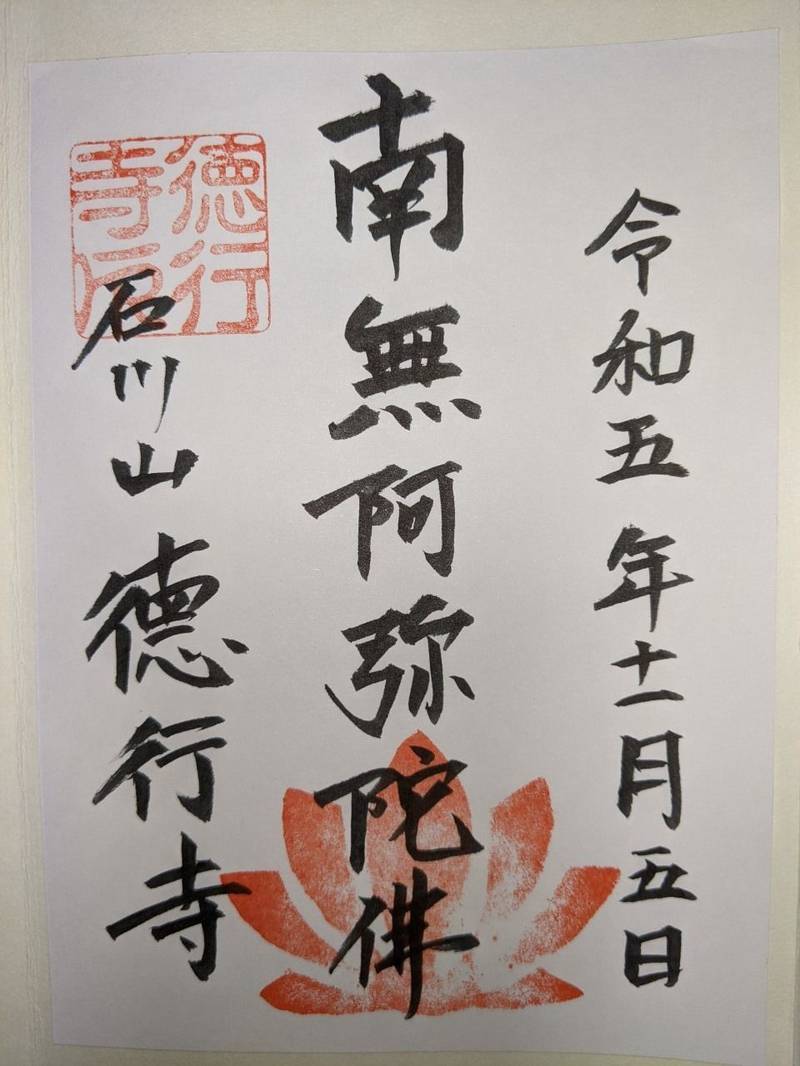 令和五年十一月五日
南無阿弥陀佛
石川山德行寺
德行寺印